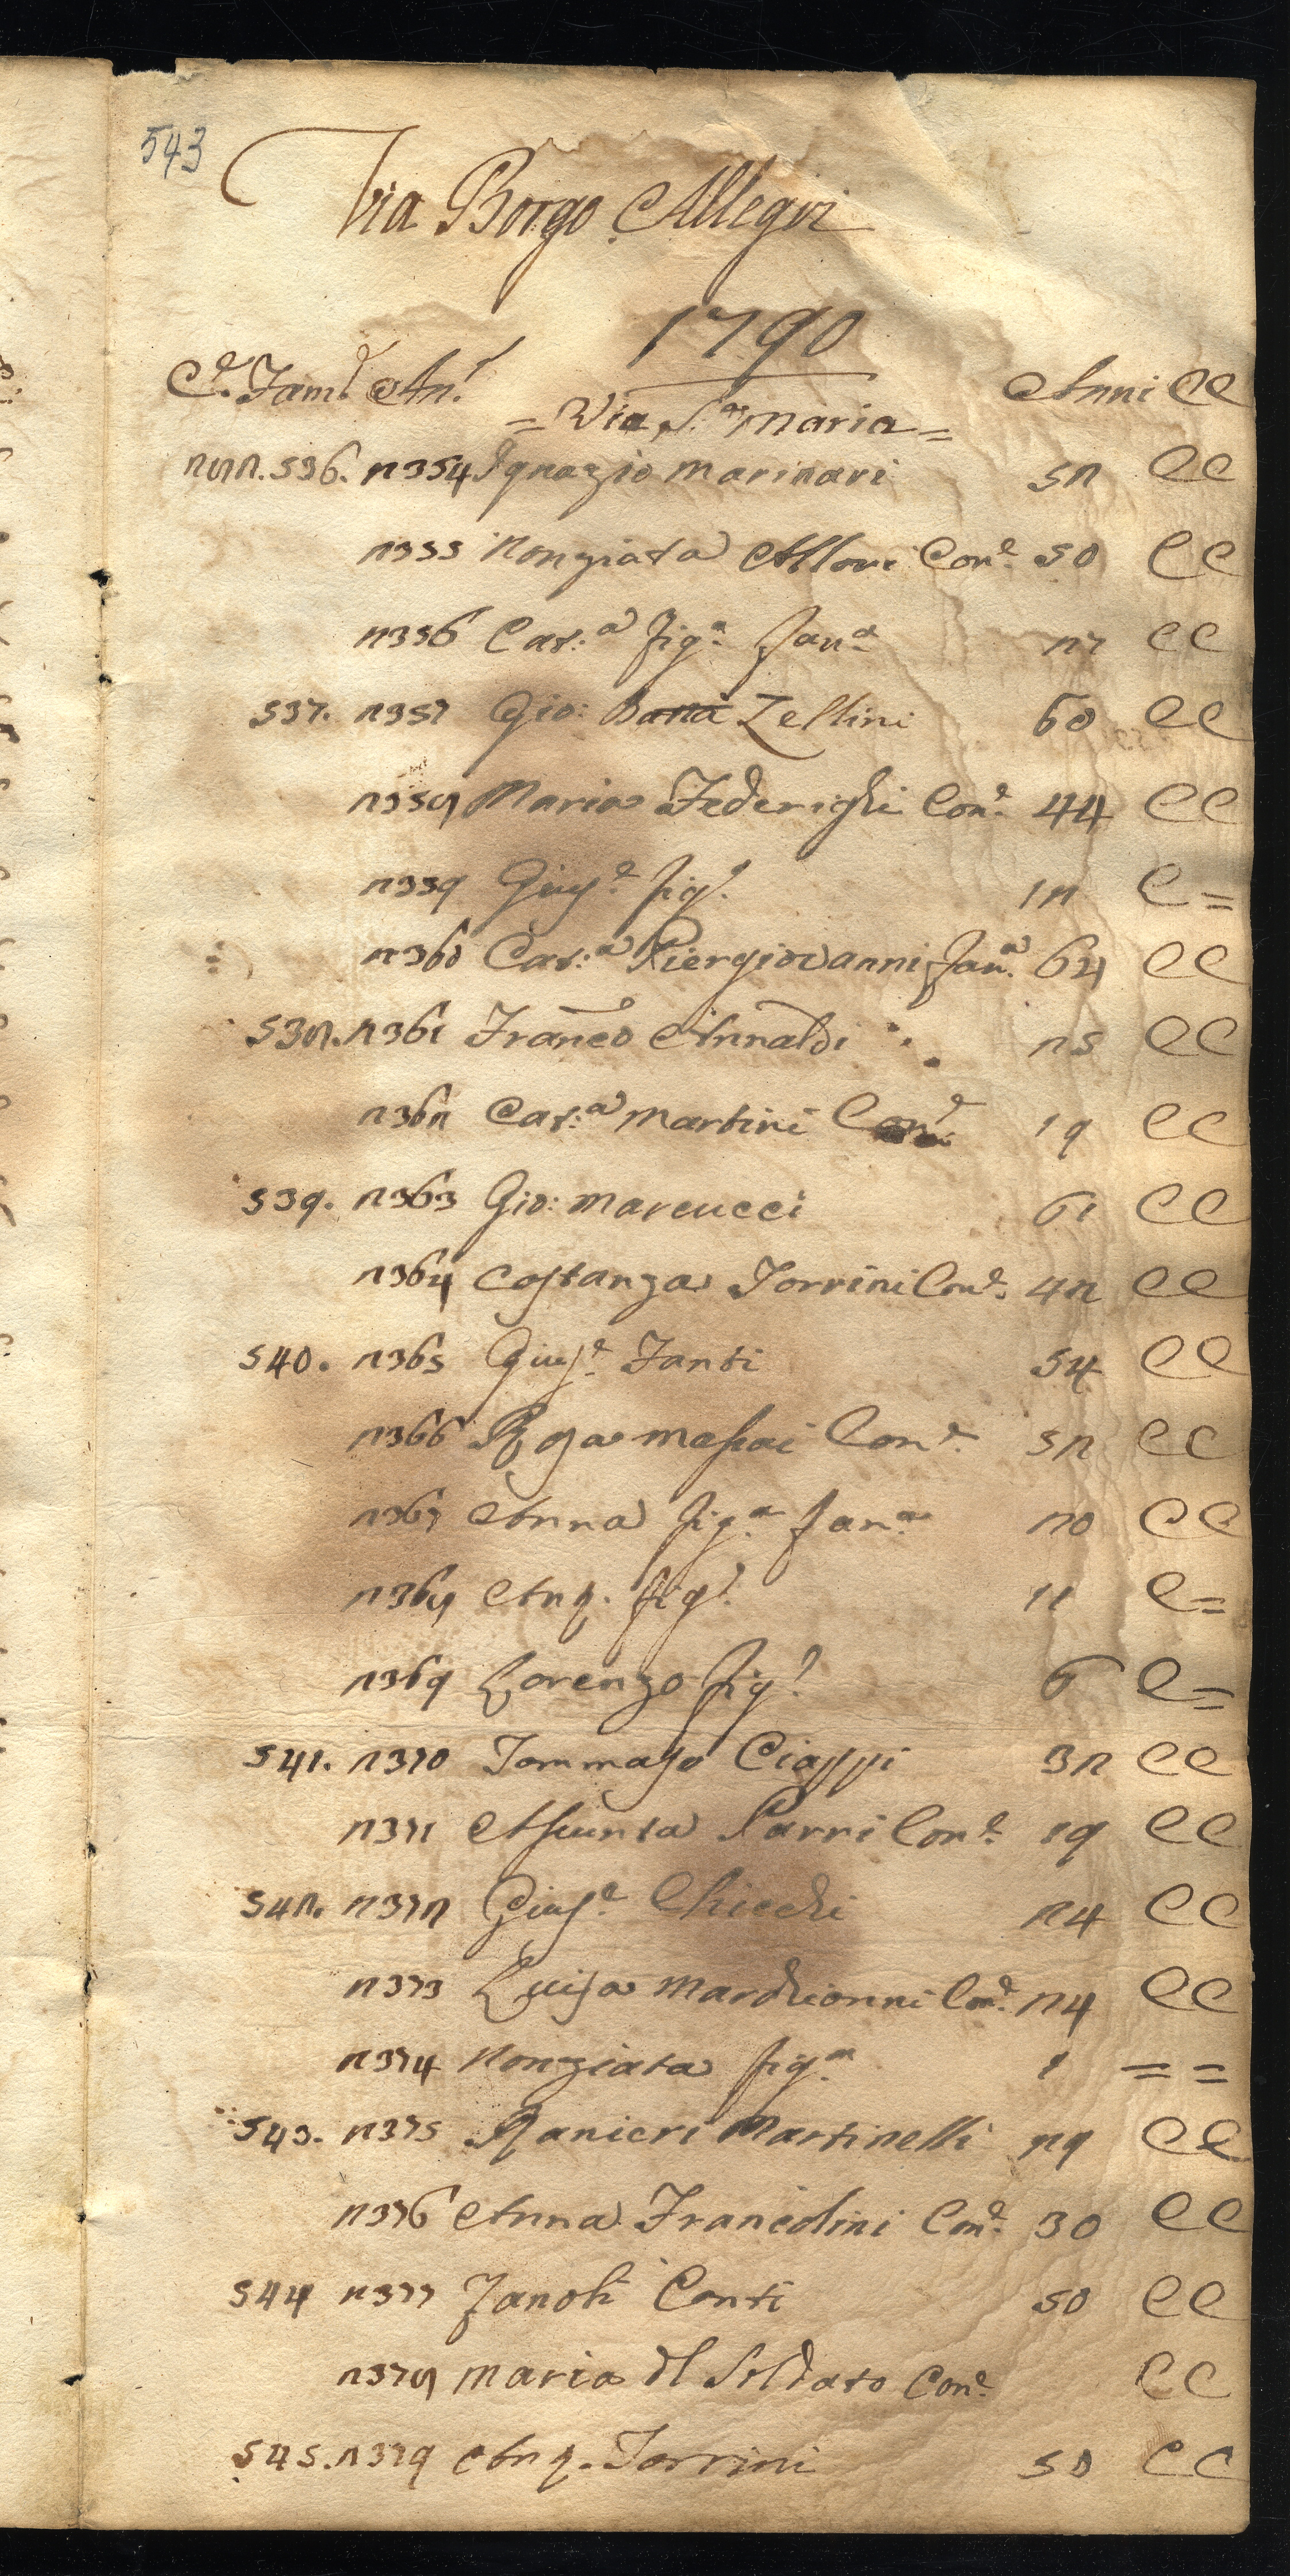 543
Via Borgo Allegri
1790
C.e Fam.e An.e Anni CC
= Via S.a Maria =
282. 536. 2354 Ignazio Marinari 52 CC
2355 Nonziata Allori Con.e 50 CC
2356 Cat:a fig.a Fan.a 27 CC
537. 2357 Gio: Batta Zellini 60 CC
2358 Maria Federighi Con.e 44 CC
2359 Gius.e fig.o 12 C =
2360 Cat:a Piergiovanni Fan.a 64 CC
538. 2361 Franco Annaldi 25 CC
2362 Cat:a Martini Con.e 19 CC
539. 2363 Gio: Marcucci 61 CC
2364 Costanza Torrini Con.e 42 CC
540. 2365 Gius.e Fanti 54 CC
2366 Rosa Massai Con.e 52 CC
2367 Anna fig.a Fan.a 20 CC
2368 Ang. fig.o 11 C =
2369 Lorenzo fig.o 6 C =
541. 2370 Tommaso Ciappi 32 CC
2371 Assunta Parri Con.e 19 CC
542. 2372 Gius.e Chicchi 24 CC
2373 Luisa Marchionni Con.e 24 CC
2374 Nonziata fig.a 1 = =
543. 2375 Ranieri Martinelli 29 CC
2376 Anna Francolini Con.e 30 CC
544 2377 Zanobi Conti 50 CC
2378 Maria dl Soldato Con.e CC
545. 2379 Ang. Torrini 50 CC